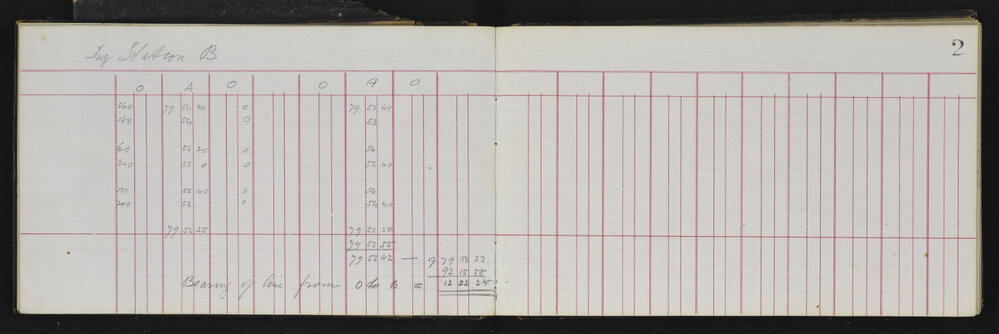 2
Trig Station B
O A O O A O
360 79 52 20 0 79 53 40
180 54 0 53
60 53 20 0 54
240 53 0 0 53 40
120 53 40 0 54
300 53 0 54 40
79 53 25 79 53 50
79 53 55
79 53 42 — 9 79 53 33
92 15 58
Bearing of line from O to B = 12 22 25